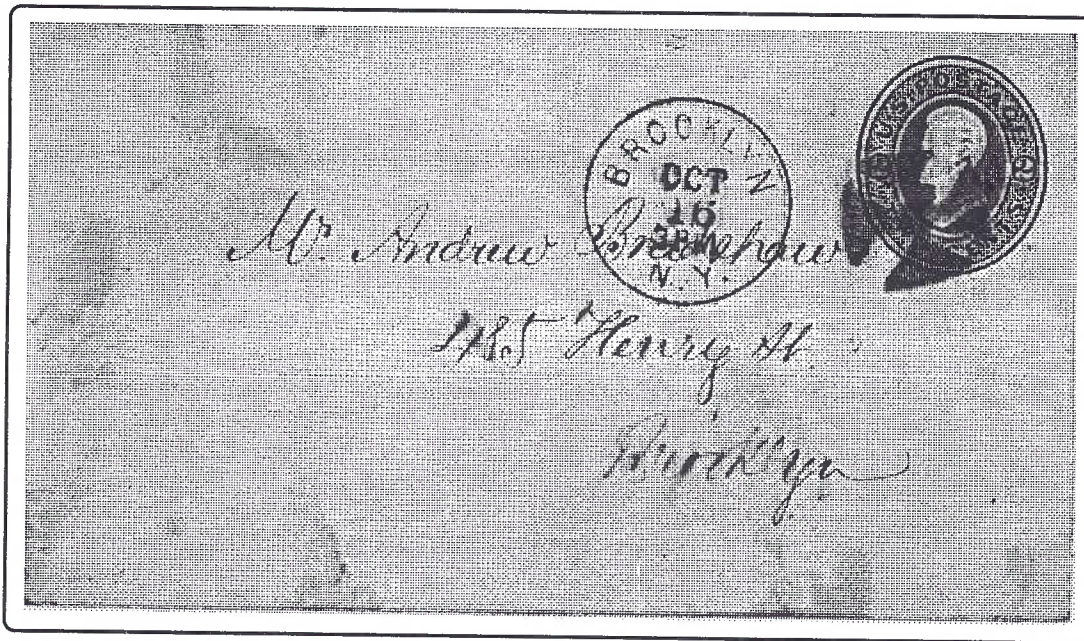 U.S. POSTAGE
TWO CENTS
BROOKLYN
OCT
16
3PM
N.Y.
Mr. Andrew Bradshaw
485 Henry St.
Brooklyn